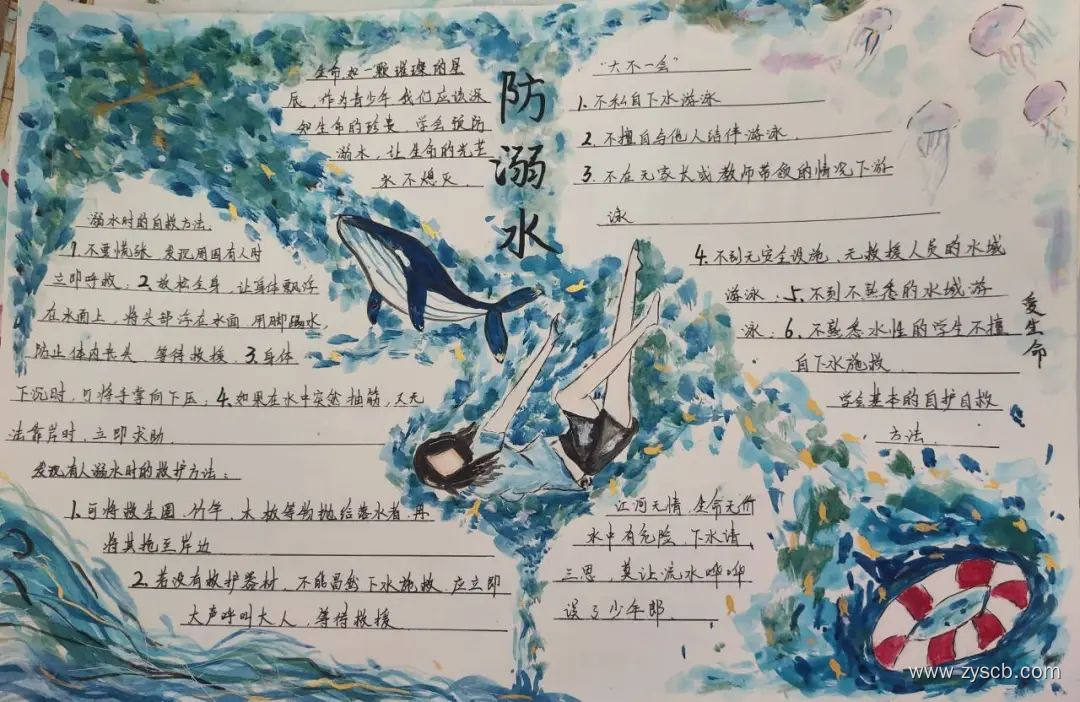 防溺水
生命如一颗璀璨的星
辰，作为青少年，我们应该深
知生命的珍贵，学会预防
溺水，让生命的光芒
永不熄灭。
"六不一会"
1.不私自下水游泳
2.不擅自与他人结伴游泳
3.不在无家长或教师带领的情况下游
泳
4.不到无安全设施，无救援人员的水域
游泳；5.不到不熟悉的水域游
泳；6.不熟悉水性的学生不擅
自下水施救
学会基本的自护自救
方法。
爱生命
溺水时的自救方法：
1.不要慌张，发现周围有人时
立即呼救；2.放松全身，让身体飘浮
在水面上，将头部浮在水面，用脚踢水，
防止体内丧失，等待救援；3.身体
下沉时，可将手掌向下压；4.如果在水中突然抽筋，又无
法靠岸时，立即求助
发现有人溺水时的救护方法：
1.可将救生圈、竹竿、木板等物抛给落水者，再
将其拖至岸边
2.若没有救护器材，不能冒然下水施救，应立即
大声呼叫大人，等待救援
江河无情，生命无价
水中有危险，下水请
三思，莫让流水哗哗
误了少年郎
www.zyscb.com